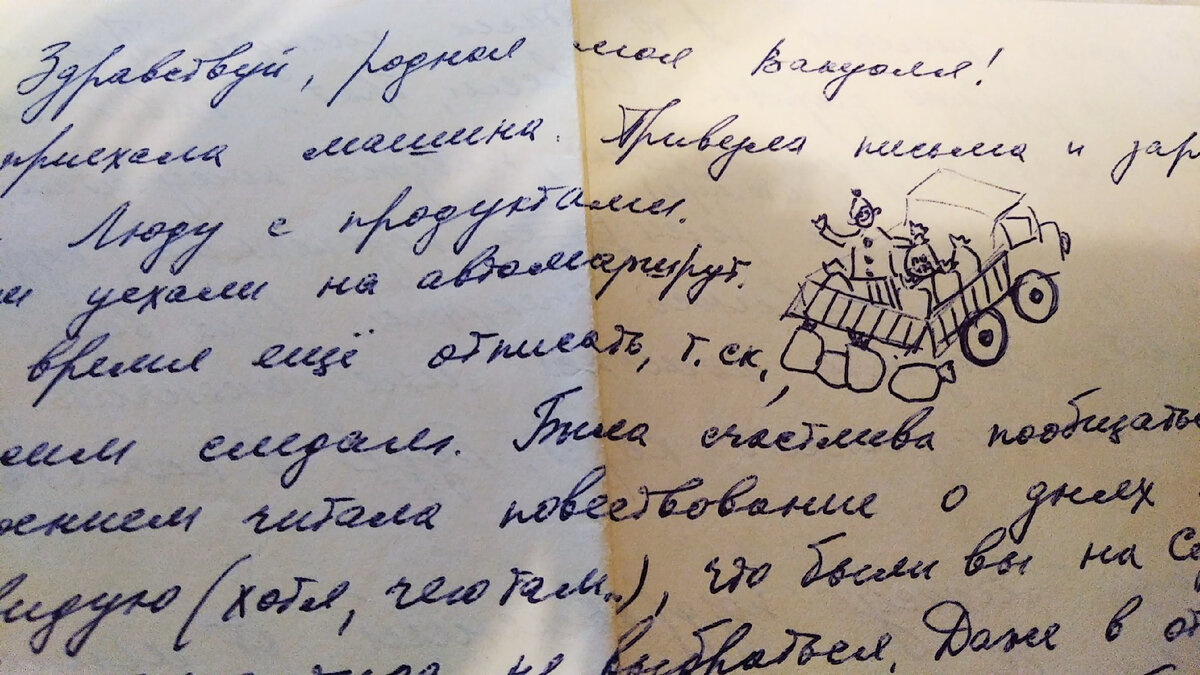 Здравствуй, родная моя Вакуоля!
приехала машина. Привезла письма и зар
Люду с продуктами.
и уехали на автомаршрут.
время ещё отписать, т.ск.,
следам. Была счастлива пообщаться
ением читала повествование о днях
видую (хотя, чего там..), что были вы на Се
не выбраться. Даже в от